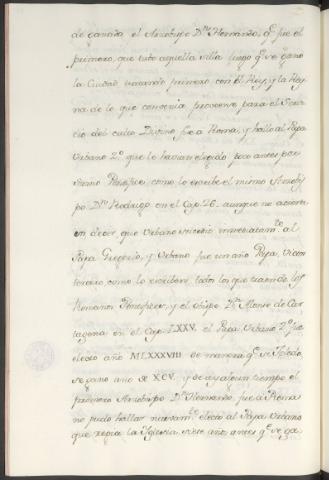 de ganada, el Arzobispo Dⁿ. Hernando, qᵉ fue el
primero, que tubo aquella villa luego qᵉ se gano
la Ciudad tratando primero con el Rey, y la Rey
na de lo que convenia proveerse para el Servi
cio del culto Divino fue a Roma, y hallo al Papa
Urbano 2º que le havian elegido poco antes por
Sumo Pontifice como lo escribe el mismo Arzobis
po Dⁿ Rodrigo en el Cap. 26. aunque no acierta
en decir, que Urbano sucedio inmediatamᵗᵉ al
Papa Gregorio, y Urbano fue un año Papa, Victor
tercero como lo escriben todos los que tratan de los
Romanos Pontifices, y el obispo Dⁿ Alonso de Car
tagena en el Cap. LXXV. el Papa Urbano 2º fue
electo año MLXXXVIII de manera qᵉ si Toledo
se gano año de XCV. y de ay algun tiempo el
primero Arzobispo Dⁿ Hernando, fue a Roma
no pudo hallar nuevamᵗᵉ electo al Papa Urbano
que regia la Iglesia siete años antes qᵉ se ga